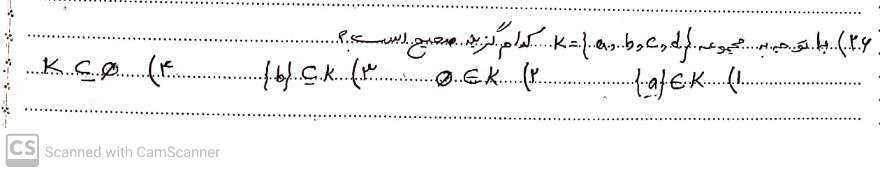 ۲۶) با توجه به مجموعه K={a,b,c,d} کدام گزینه صحیح است؟
۱) {a}∈K ۲) ∅∈K ۳) {b}⊆K ۴) K⊆∅
CS Scanned with CamScanner